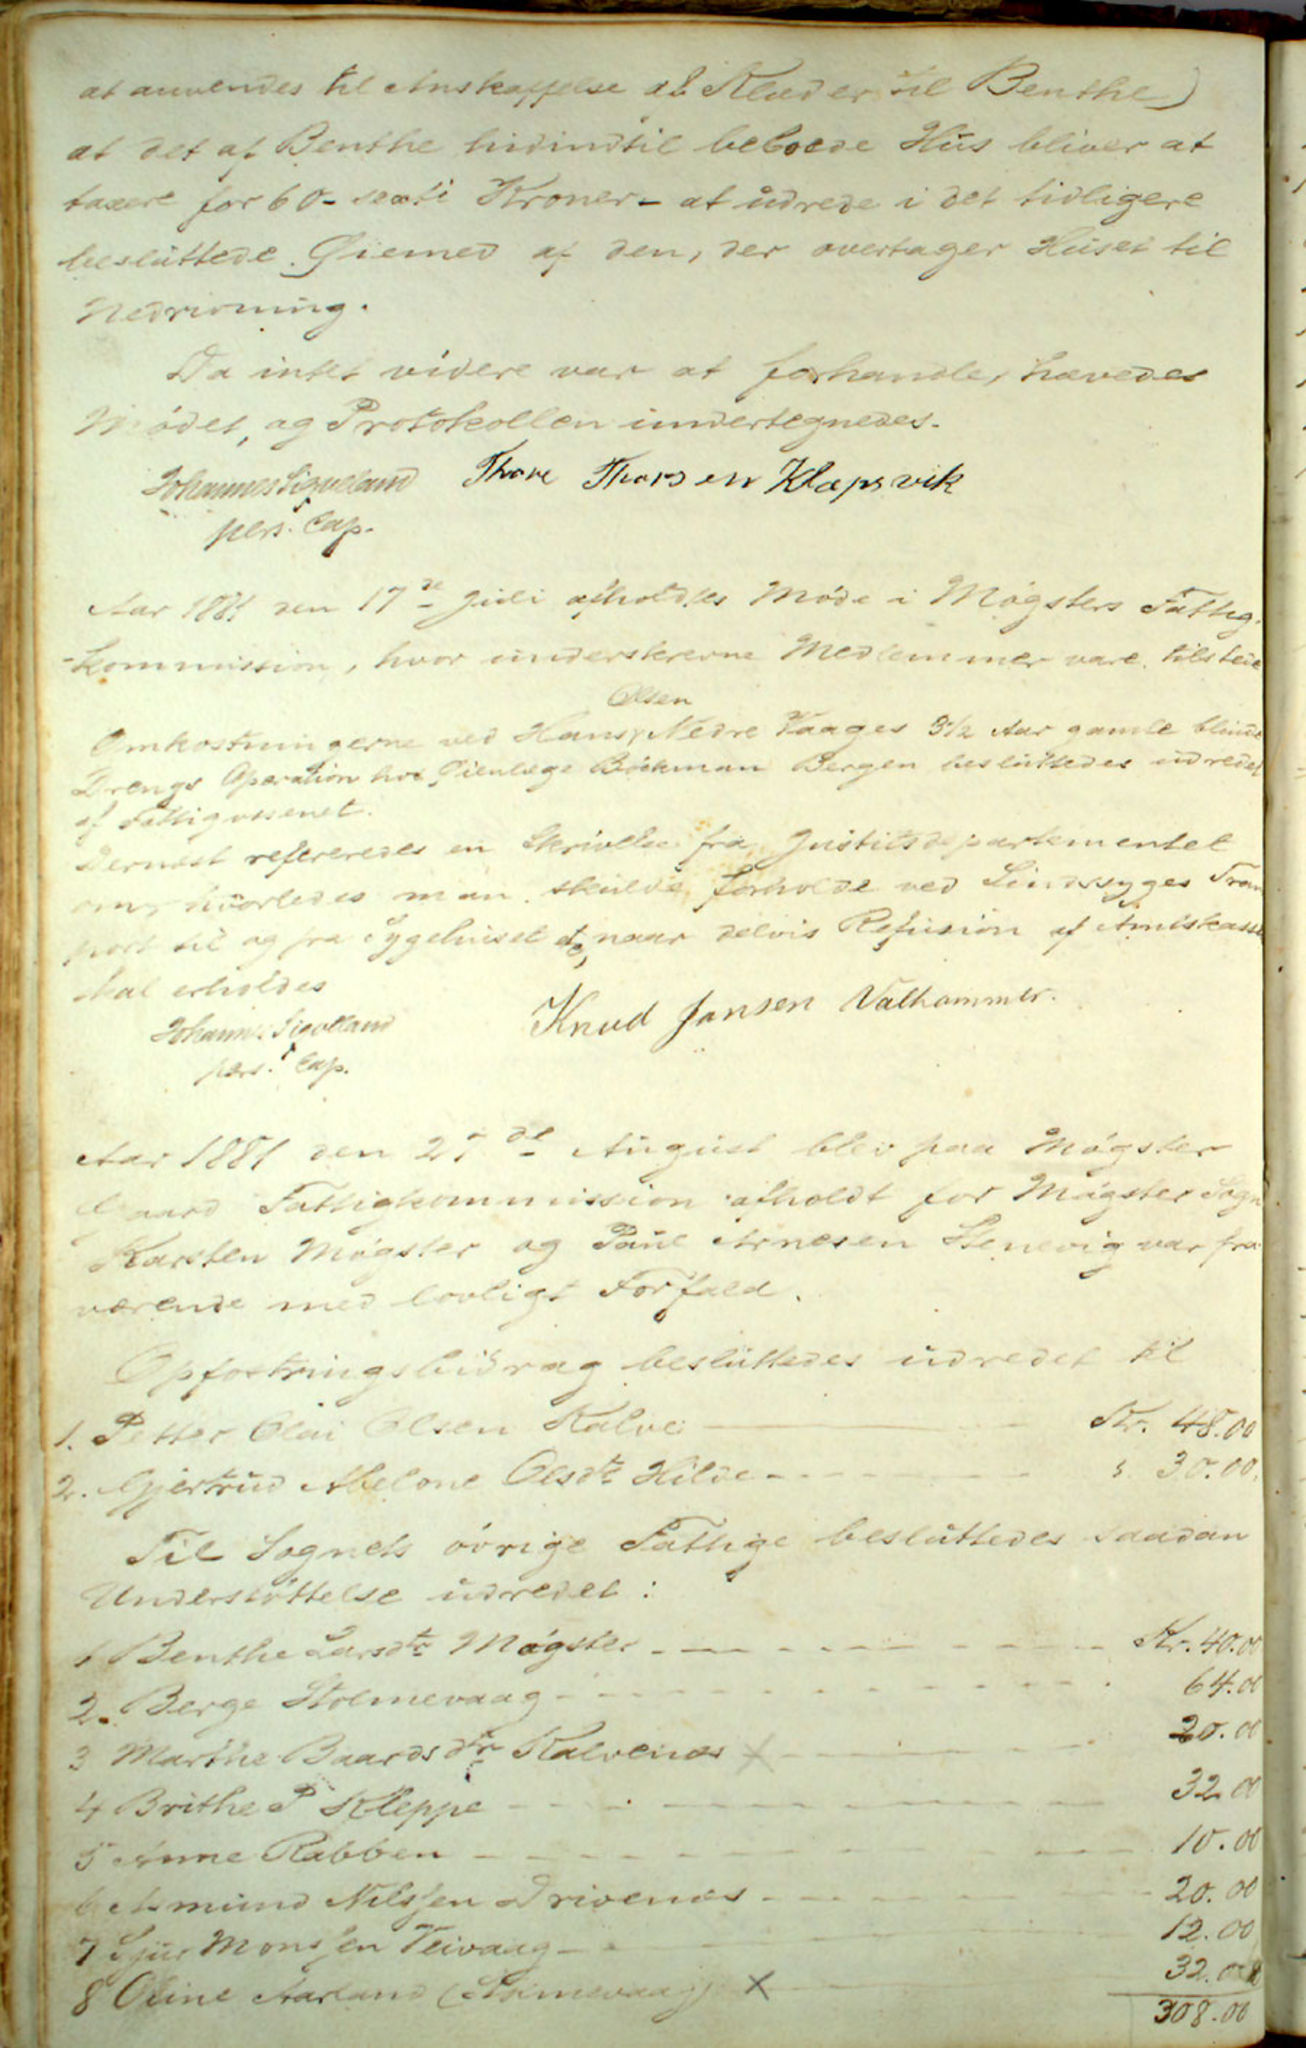 at anvendes til Anskaffelse af Klæder til Benthe)
at det af Benthe hidindtil beboede Hus bliver at
taxere for 60 - sexti Kroner - at udrede i det tidligere
besluttede Øiemed af den, der overtager Huset til
Nedrivning.
Da intet videre var at forhandle, hævedes
Mødet, og Protokollen undertegnedes.
Johannes Sigveland Thore Thorsen Klapsvik
pers. Cap.
Aar 1881 den 17de Juli afholdtes Møde i Møgsters Fattig-
-kommission, hvor underskrevne Medlemmer vare tilstede
Olsen
Omkostningerne ved Hans Nedre Vaages 3 1/2 Aar gamle blinde
Drengs Operation hos Øienlæge Bøckman Bergen besluttedes udredet
af Fattigvæsenet.
Dernæst refereredes en Skrivelse fra Justitsdepartementet
om, hvorledes man skulde forholde ved Sindssyges Trans
port til og fra Sygehuset naar delvis Refusion af Amtskassen
skal erholdes
Johannes Sigveland Knud Jansen Valhammer.
pers. Cap.
Aar 1881 den 27de August blev paa Møgster
Gaard Fattigkommission afholdt for Møgster Sogn
Karsten Møgster og Paul Arnesen Stenevig var fra
værende med lovligt Forfald.
Opfostringsbidrag besluttedes udredet til
1. Petter Olai Olsen Kalve Kr. 48.00
2. Gjertrud Abelone Olsdtr Hilde - - - - 30.00
Til Sognets øvrige Fattige besluttedes saadan
Understøttelse udredet:
1 Benthe Larsdtr Møgster - - - - Kr. 40.00
2. Berge Stolmevaag - - - - 64.00
3 Marthe Baardsdtr Kalvenæs X - - - 20.00
4 Brithe P Kleppe - - - - 32.00
5 Anne Rabben - - - - 10.00
6 Asmund Nilssen Drivenæs - - - - 20.00
7 Sjur Monssen Veivaag - - - - 12.00
8 Oline Aarland (Stolmevaag) X 32.00
308.00